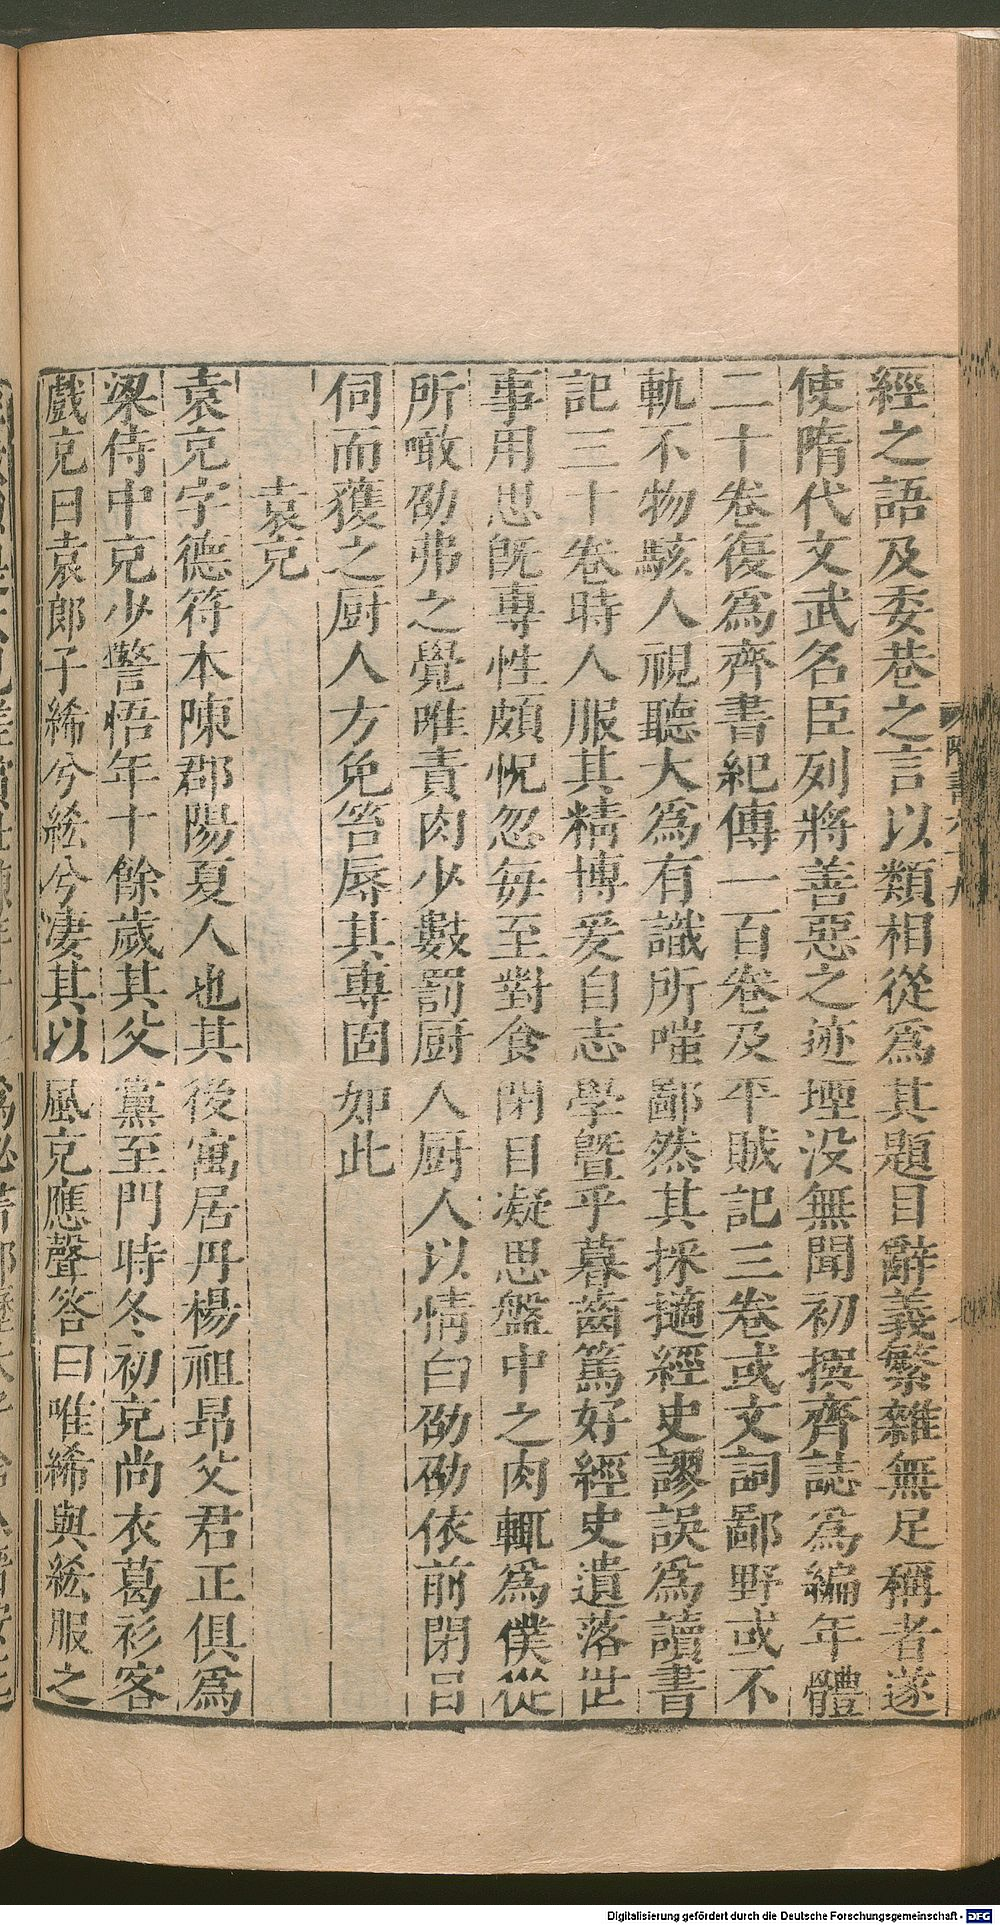 經之語及委巷之言以類相從爲其題目辭義繁雜無足稱者遂
使隋代文武名臣列將善惡之迹堙没無聞初撰齊誌爲編年體
二十卷復爲齊書紀傳一百卷及平賊記三卷或文詞鄙野或不
軌不物駭人視聽大爲有識所嗤鄙然其採擿經史謬誤爲讀書
記三十卷時人服其精博爰自志學曁乎暮齒篤好經史遺落世
事用思旣專性頗怳忽每至對食閉目凝思盤中之肉輒爲僕從
所噉劭弗之覺唯責肉少數罰厨人厨人以情白劭劭依前閉目
伺而獲之厨人方免笞辱其專固如此
袁充
袁充字德符本陳郡陽夏人也其後寓居丹楊祖昻父君正俱爲
梁侍中充少警悟年十餘歲其父黨至門時冬初充尚衣葛衫客
戲充曰袁郎子絺兮綌兮淒其以風充應聲答曰唯絺與綌服之
隋書六十九
Digitalisierung gefördert durch die Deutsche Forschungsgemeinschaft - DFG